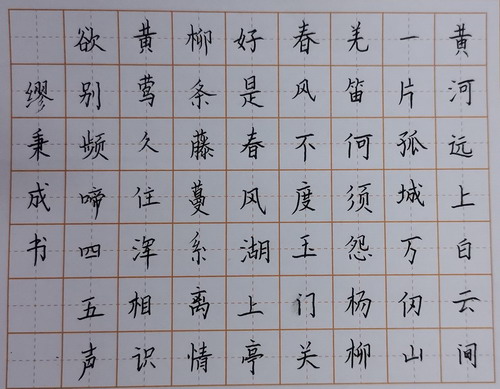 黄河远上白云间
一片孤城万仞山
羌笛何须怨杨柳
春风不度玉门关
好是春风湖上亭
柳条藤蔓系离情
黄莺久住浑相识
欲别频啼四五声
缪秉成书